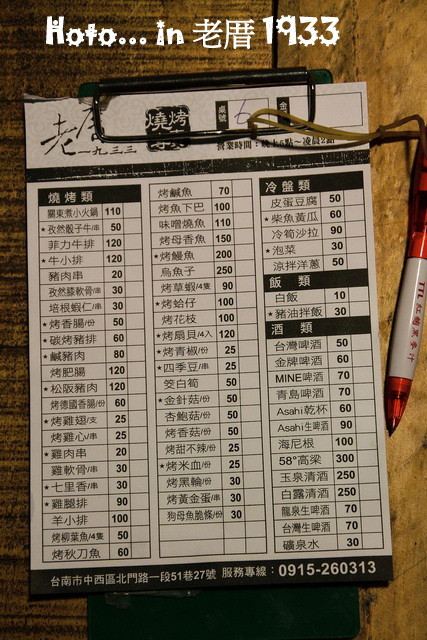 Hoto... in 老厝 1933
老厝
一九三三
燒烤
桌號
6
營業時間：晚上5點~凌晨2點
燒烤類
關東煮小火鍋 110
★孜然骰子牛/串 50
菲力牛排 120
★牛小排 120
豬肉串 20
孜然膝軟骨/串 30
培根蝦仁/串 30
★烤香腸/份 50
★碳烤豬排 60
★鹹豬肉 80
烤肥腸 120
★松阪豬肉 120
烤德國香腸/份 60
★烤雞翅/支 25
烤雞心/串 25
★雞肉串 20
雞軟骨/串 30
★七里香/串 30
★雞腿排 90
羊小排 100
烤柳葉魚/4隻 50
烤秋刀魚 60
烤鹹魚 70
烤魚下巴 100
味噌燒魚 110
烤母香魚 150
★烤鰻魚 200
烏魚子 250
烤草蝦/4隻 90
★烤蛤仔 100
烤花枝 100
★烤扇貝/4入 120
★烤青椒/份 25
★四季豆/串 25
筊白筍 50
★金針菇/份 50
杏鮑菇/份 50
烤香菇/份 50
烤甜不辣/份 25
★烤米血/份 25
烤黑輪/份 30
烤黃金蛋/串 30
狗母魚脆條/份 30
冷盤類
皮蛋豆腐 50
★柴魚黃瓜 60
冷筍沙拉 90
★泡菜 30
涼拌洋蔥 50
飯 類
白飯 10
★豬油拌飯 30
酒 類
台灣啤酒 50
金牌啤酒 60
MINE啤酒 70
青島啤酒 70
Asahi乾杯 60
Asahi生啤酒 90
海尼根 100
58°高粱 300
玉泉清酒 250
白露清酒 250
龍泉生啤酒 70
台灣生啤酒 70
礦泉水 30
台南市中西區北門路一段51巷27號 服務專線：0915-260313